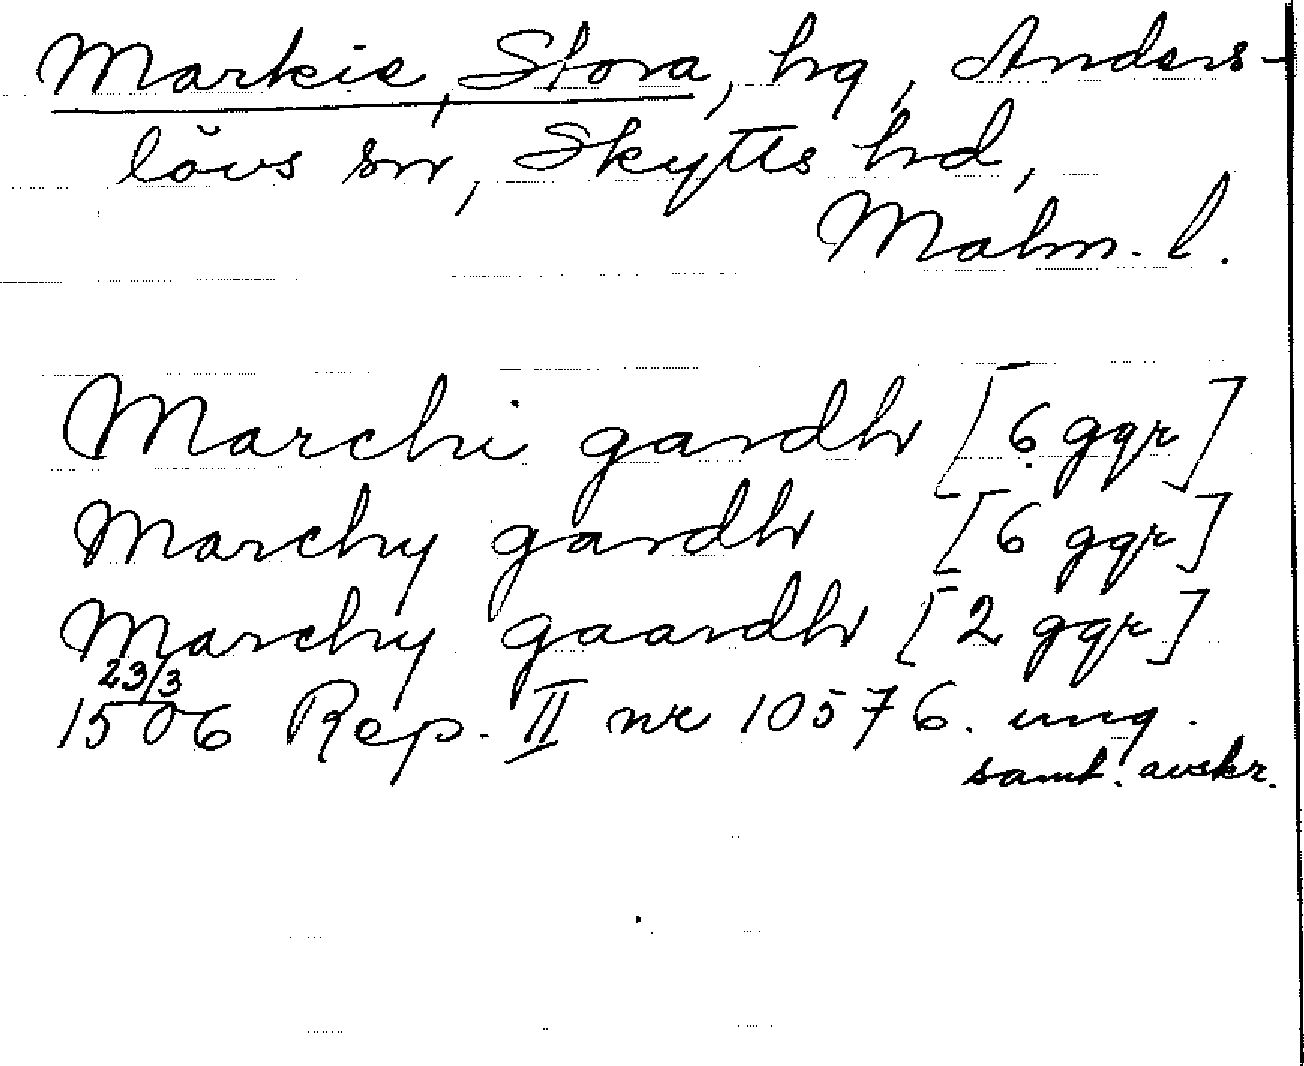 Markie, Stora, hg, Anders-
lövs sn, Skytts hd,
Malm. l.
Marchi gardh [6 ggr]
Marchy gardh [6 ggr]
Marchy gaardh [2 ggr]
23/3
1506 Rep. II nr 10576. ung.
samt. avskr.